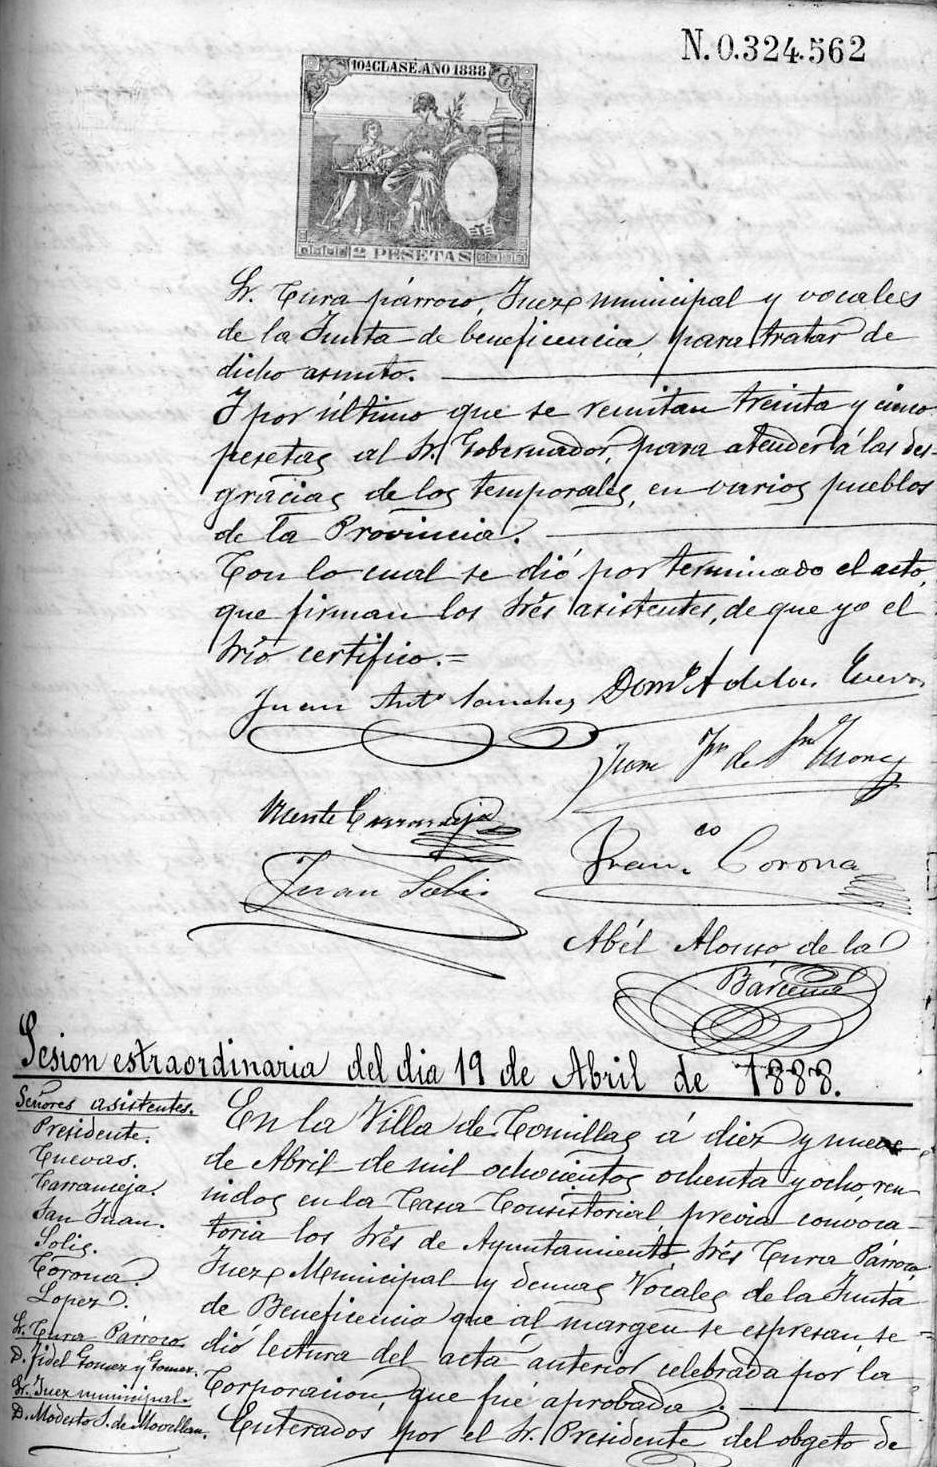 N.0.324.562
10ª CLASE. AÑO 1888
2 PESETAS
Sr. Cura párroco, Juez municipal y vocales
de la Junta de beneficencia, para tratar de
dicho asunto.
Y por último que se remitan treinta y cinco
pesetas al Sr. Gobernador, para atender á las des-
gracias de los temporales, en varios pueblos
de la Provincia.
Con lo cual se dió por terminado el acto,
que firman los Srés asistentes, de que yo el
Srio certifico.=
Juan Antº Sanchez Domº A de las Cuevas
Juan Jn de Sn Juan
Vicente Carranceja
Franco Corona
Juan Solis
Abél Alonso de la
Bárcena
Sesion estraordinaria del dia 19 de Abril de 1888.
Señores asistentes.
Presidente.
Cuevas.
Carranceja.
San Juan.
Solis.
Corona.
Lopez.
Sr. Cura Párroco
D. Fidel Gomez y Gomez.
Sr. Juez municipal.
D. Modesto S. de Movellan.
En la Villa de Comillas á diez y nueve
de Abril de mil ochocientos ochenta y ocho, reu-
nidos en la Casa Consistorial, previa convoca-
toria los Srés de Ayuntamiento, Srés Cura Párroco,
Juez Municipal y demas Vocales de la Junta
de Beneficencia que al margen se espresan, se=
dió lectura del acta anterior celebrada por la
Corporacion, que fué aprobada.
Enterados por el Sr. Presidente del obgeto de